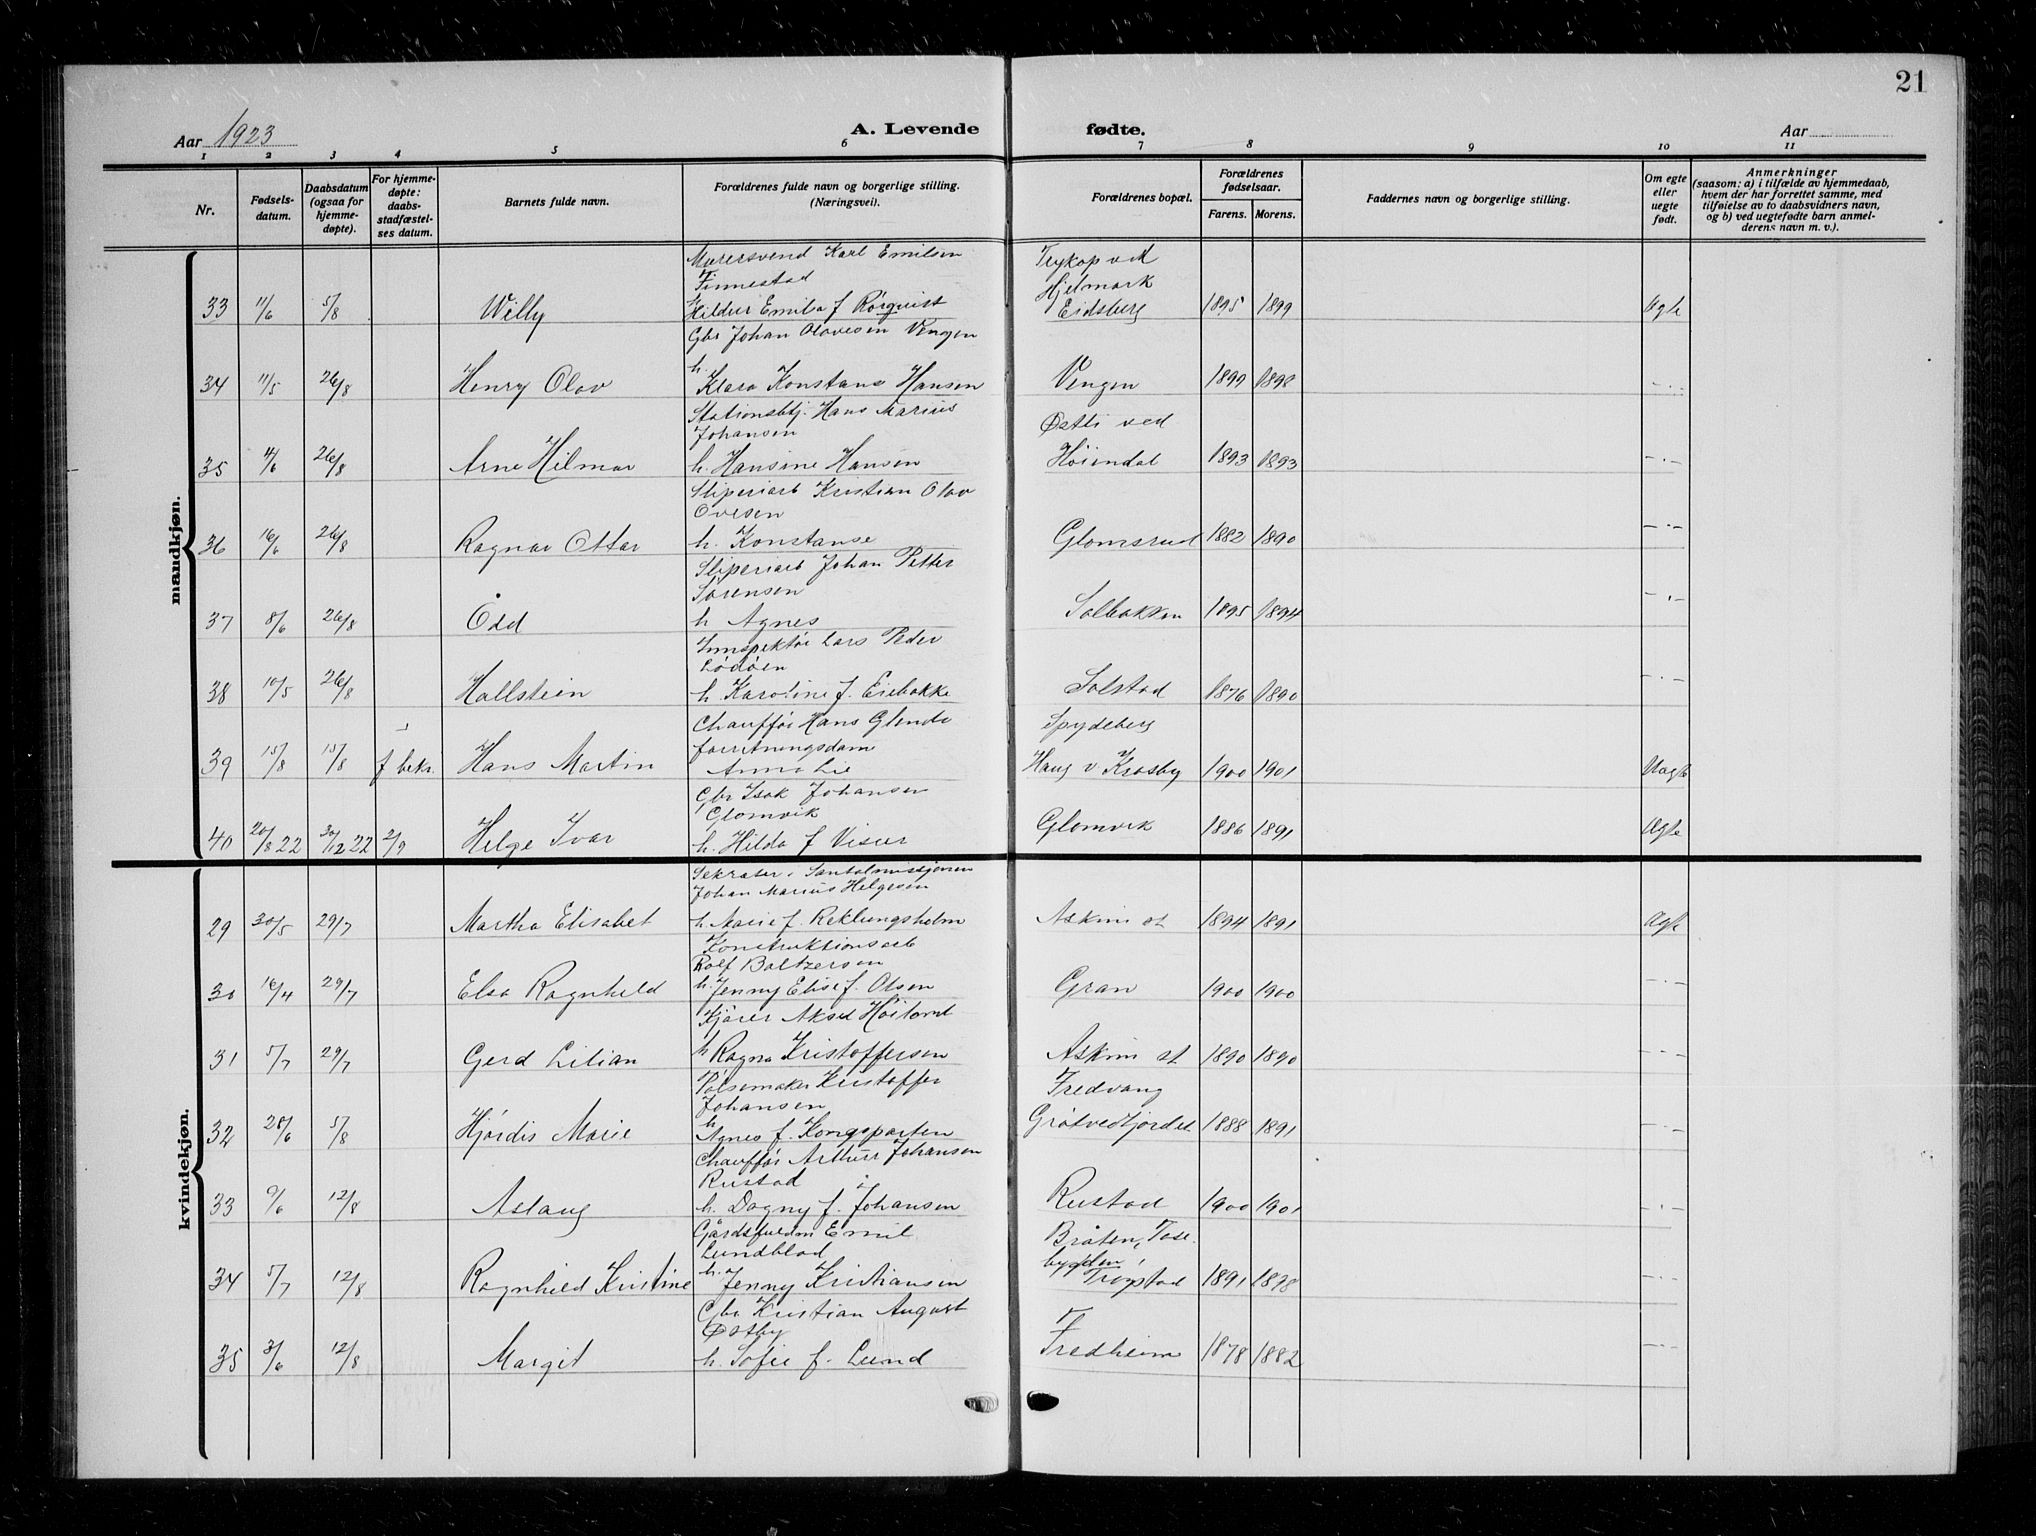 21
Aar 1923
A. Levende fødte.
Aar
1 2 3 4 5 6 7 8 9 10 11
Nr.
Fødsels-
datum.
Daabsdatum
(ogsaa for
hjemme-
døpte).
For hjemme-
døpte:
daabs-
stadfæstel-
ses datum.
Barnets fulde navn.
Forældrenes fulde navn og borgerlige stilling.
(Næringsvei).
Forældrenes bopæl.
Forældrenes
fødselsaar.
Farens. Morens.
Faddernes navn og borgerlige stilling.
Om egte
eller
uegte
født.
Anmerkninger
(saasom: a) i tilfælde av hjemmedaab,
hvem der har forrettet samme, med
tilføielse av to daabsvidners navn,
og b) ved uegtefødte barn anmel-
derens navn m. v.).
mandkjøn.
Murersvend Karl Emilsen
Finnestad
33 11/6 5/8 Willy
h Hildur Emilia f Rørquist
ved
Hjelmark
Eidsberg 1895 1899 Ægte
Gbr Johan Olavesen Vengen
34 11/5 26/8 Henry Olav
h. Klara Konstans Hansen
Vengen 1899 1898 -"-
Stationsbtj. Hans Marius
Johansen
35 4/6 26/8 Arne Hilmar
h. Hansine Hansen
Østli ved
Høiendal 1893 1893 -"-
Sliperiarb Kristian Olav
Ovesen
36 16/6 26/8 Ragnar Ottar
h. Konstanse
Glomsrud 1882 1890 -"-
Sliperiarb Johan Petter
Sørensen
37 8/6 26/8 Odd
h Agnes
Solbakken 1895 1894 -"-
Innspektør Lars Peder
Lødøen
38 10/5 26/8 Hallstein
h Karoline f. Eiebakke
Solstad 1876 1890 -"-
Chauffør Hans Glende
forretningsdam
39 15/8 15/8 f bekr. Hans Martin
Anna Lie
Spydeberg
Haug v Krosby 1900 1901 Uægte
Gbr Isak Johansen
Glomvik
40 20/8 22 30/12 22 2/9 Helge Ivar
h. Hilda f Visur
Glomvik 1886 1891 Ægte
kvindekjøn.
Sekretær i Santalmissjonen
Johan Marius Helgesen
29 30/5 29/7 Martha Elisabet
h Marie f. Reklungsholm
Askim st 1894 1891 Ægte
Konstruktionsarb
Rolf Baltzersen
30 16/4 29/7 Elsa Ragnhild
h. Jenny Elise f. Olsen
Gran 1900 1900 -"-
Kjører Aksel Høitomt
31 5/7 29/7 Gerd Lilian
h Ragna Kristoffersen
Askim st 1890 1890 -"-
Pølsemaker Kristoffer
Johansen
32 28/6 5/8 Hjørdis Marie
h Agnes f. Kongsparten
Fredvang
Grøtvedtjordet 1888 1891 -"-
Chauffør Arthur Johansen
Rustad
33 9/6 12/8 Aslaug
h. Dagny f. Johansen
Rustad 1900 1901 -"-
Gårdsfuldm Emil
Lundblad
34 5/7 12/8 Ragnhild Kristine
h. Jenny Kristiansen
Bråten, Tose-
bygden
Trøgstad 1891 1898 -"-
Gbr Kristian August
Østby
35 3/6 12/8 Margit
h. Sofie f. Lund
Fredheim 1878 1882 -"-